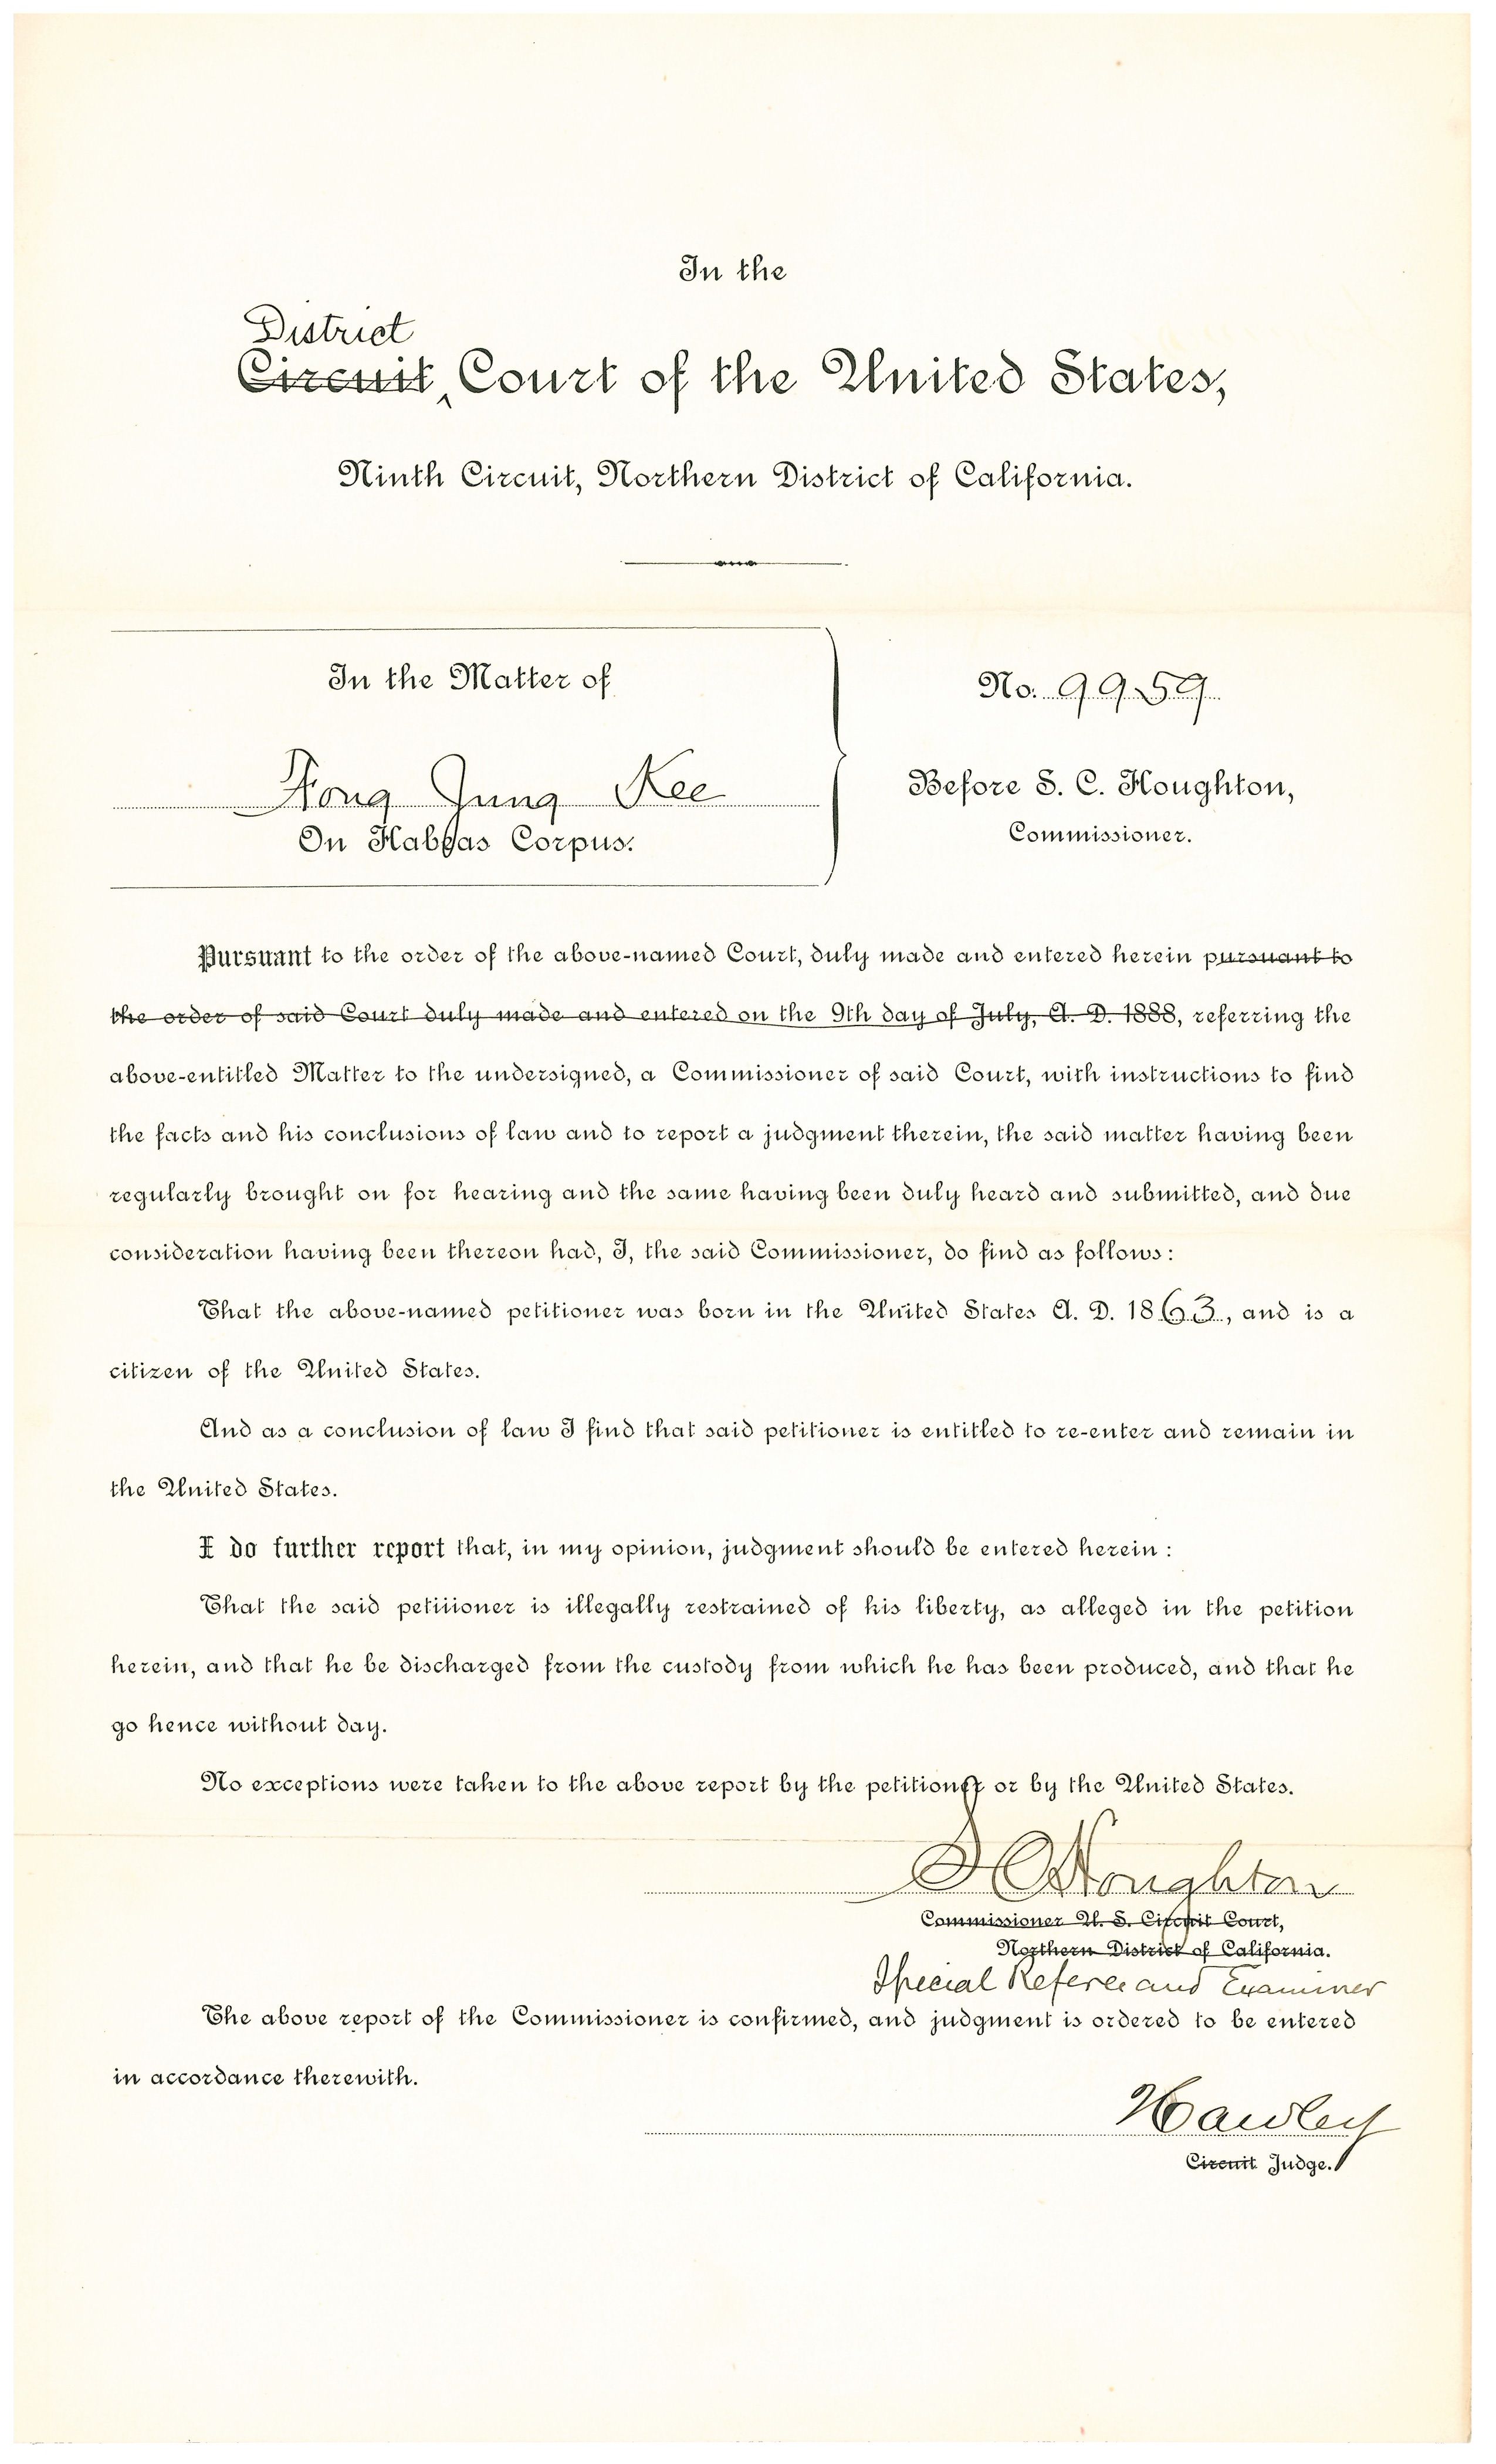 In the
District
Circuit Court of the United States,
Ninth Circuit, Northern District of California.
In the Matter of
No. 9959
Fong Jung Kee
Before S. C. Houghton,
On Habeas Corpus.
Commissioner.
Pursuant to the order of the above-named Court, duly made and entered herein pursuant to
the order of said Court duly made and entered on the 9th day of July, A. D. 1888, referring the
above-entitled Matter to the undersigned, a Commissioner of said Court, with instructions to find
the facts and his conclusions of law and to report a judgment therein, the said matter having been
regularly brought on for hearing and the same having been duly heard and submitted, and due
consideration having been thereon had, I, the said Commissioner, do find as follows:
That the above-named petitioner was born in the United States A. D. 1863, and is a
citizen of the United States.
And as a conclusion of law I find that said petitioner is entitled to re-enter and remain in
the United States.
I do further report that, in my opinion, judgment should be entered herein:
That the said petitioner is illegally restrained of his liberty, as alleged in the petition
herein, and that he be discharged from the custody from which he has been produced, and that he
go hence without day.
No exceptions were taken to the above report by the petitioner or by the United States.
S C Houghton
Commissioner U. S. Circuit Court,
Northern District of California.
Special Referee and Examiner
The above report of the Commissioner is confirmed, and judgment is ordered to be entered
in accordance therewith.
Hawley
Circuit Judge.